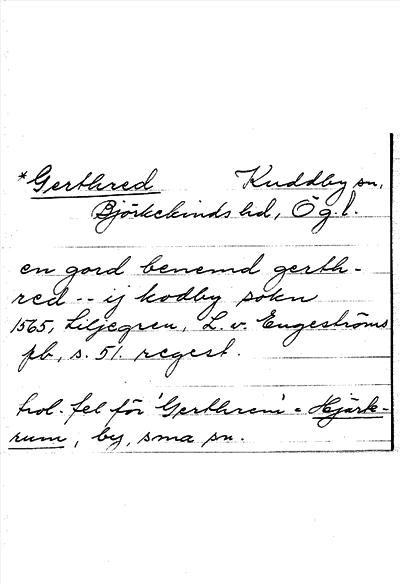 *Gerthred Kuddby sn,
Björkekinds hd, Ög.l.
en gord benemd gerth-
red -- ij kodby sokn
1565, Liljegren, L. v. Engeströms
pb, s. 51. regest.
trol. fel för 'Gerthrem' = Hjärt-
rum, by, sma sn.